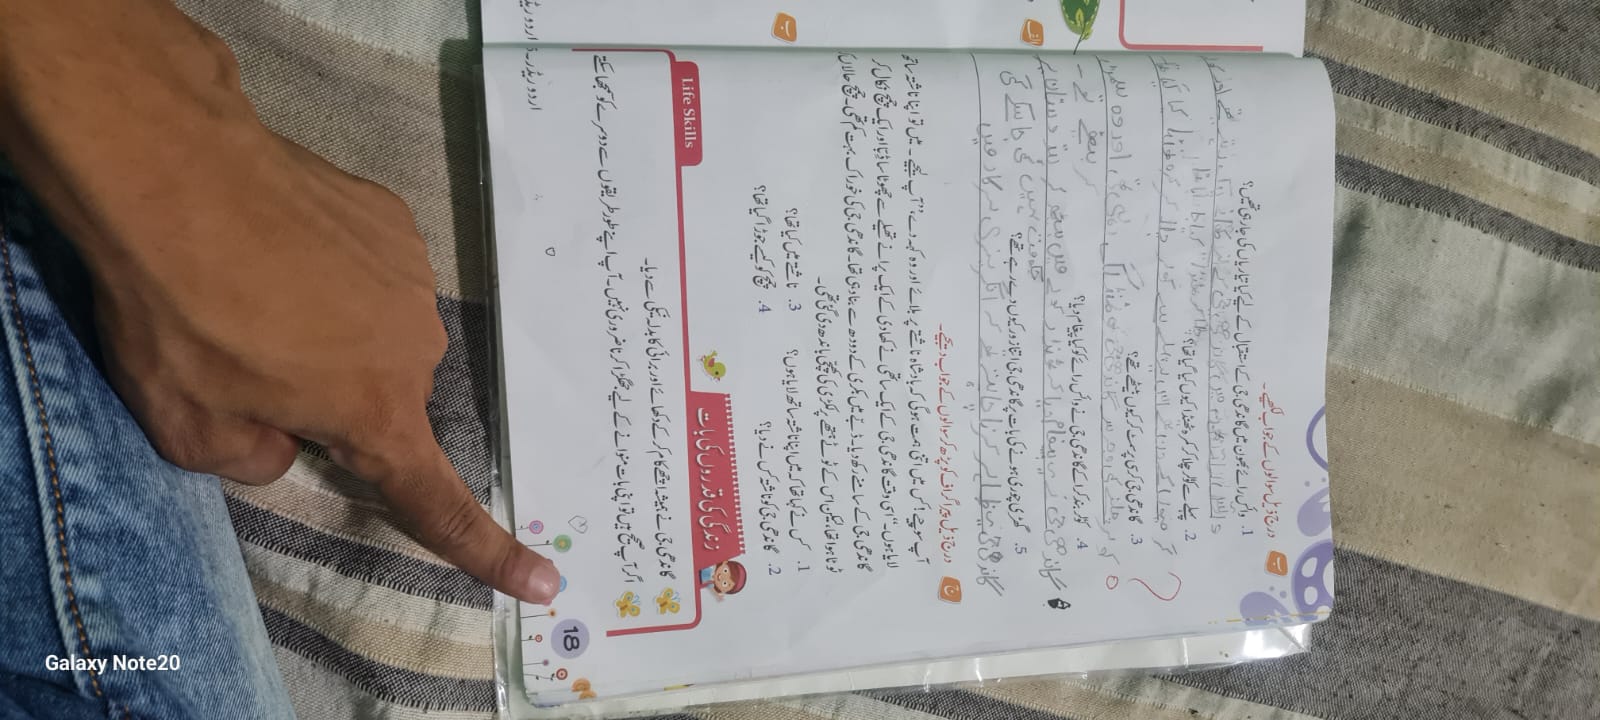 ب درج ذیل سوالوں کے جواب لکھیے۔
1. وائس رائے بھون میں گاندھی جی کے استقبال کے لیے کیا تیاریاں کی جارہی تھیں؟
2. پہلے سے کولر چلا کر کمرہ ٹھنڈا کیوں کیا گیا تھا؟
پہلے سے کولر چالا کر کمرہ ٹھنڈا کیا گیا تھا
3. گاندھی جی کرسی پر سمٹ کر کیوں بیٹھے تھے؟
کولر چلنے کی وجہ سے گاندھی جی کو ٹھنڈ لگ رہی تھی اور وہ سمٹ
کر بیٹھے تھے۔
4. کولر بند کرا کے گاندھی جی نے وائس رائے کو کیا پیغام دیا؟
گاندھی جی نے یہ پیغام دیا کہ ٹھنڈے کمرے میں بیٹھ کر ہندوستان پر
حکومت نہیں کی جا سکے گی
5. گھڑی چوری ہونے کی بات پر گاندھی جی اتنا زور کیوں دے رہے تھے؟
گاندھی جی یہ ظاہر کرنا چاہتے تھے کہ انگریزی سرکار میں
ج درج ذیل پیراگراف کو پڑھ کر سوالوں کے جواب دیجیے۔
آپ سوچیے! کس میں اتنی ہمت ہوگی کہ بادشاہ ناشتے پر بلائے اور وہ کہہ دے، ”آپ لیجیے۔ میں تو اپنا ناشتہ ساتھ
لایا ہوں۔“ اسی وقت گاندھی جی کے ایک ساتھی نے کھادی کے ایک پرانے تھیلے سے چھوٹا سا ڈبّا اور ایک چمچ نکال کر
گاندھی جی کے سامنے رکھ دیا۔ ڈبّے میں بکری کے دودھ سے بنا دہی تھا۔ گاندھی جی کی خوراک بہت کم تھی۔ چمچ حالاں کہ
ٹوٹا ہوا تھا، لیکن اس کے ٹوٹے ہتھے پر لکڑی کی کھپچی باندھ دی گئی تھی۔
1. کس نے کہا تھا کہ میں اپنا ناشتہ ساتھ لایا ہوں؟ 3. ناشتے میں کیا تھا؟
2. گاندھی جی کو ناشتہ کس نے دیا؟ 4. چمچ کو کیسے جوڑا گیا تھا؟
زندگی کی قدروں کی بات
Life Skills
گاندھی جی نے ہمیشہ اچھے کام کر کے دکھائے اور برائی کا بدلہ نیکی سے دیا۔
اگر آپ صحیح ہیں تو اپنی بات منوانے کے لیے جھگڑا کرنا ضروری نہیں۔ آپ اپنے طور طریقوں سے دوسرے کو سمجھا سکتے
18
اردو ریڈر۔5
الف
ب
Galaxy Note20